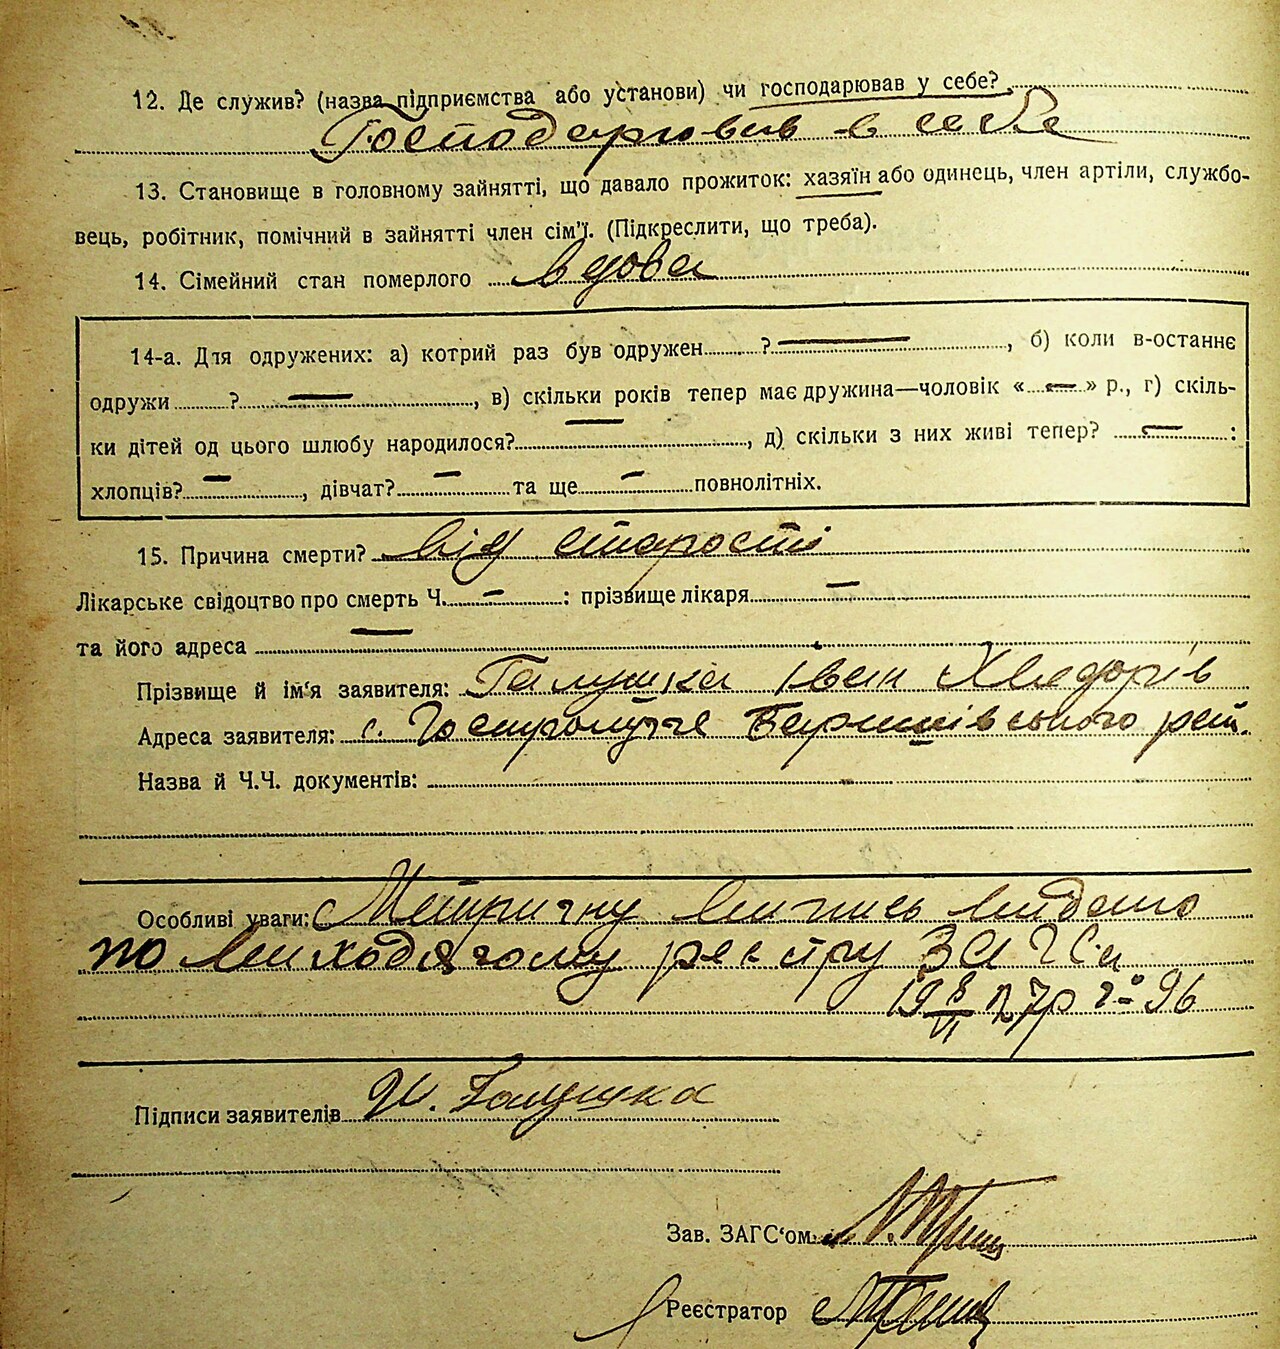 12. Де служив? (назва підприємства або установи) чи господарював у себе?
Господарював в себе
13. Становище в головному зайнятті, що давало прожиток: хазяїн або одинець, член артіли, службо-
вець, робітник, помічний в зайнятті член сім'ї. (Підкреслити, що треба).
14. Сімейний стан померлого вдова
14-а. Для одружених: а) котрий раз був одружен ? —, б) коли в-останнє
одружи ? —, в) скільки років тепер має дружина—чоловік «—» р., г) скіль-
ки дітей од цього шлюбу народилося? —, д) скільки з них живі тепер? — :
хлопців? —, дівчат? — та ще — повнолітніх.
15. Причина смерти? Від старости
Лікарське свідоцтво про смерть Ч. — : прізвище лікаря —
та його адреса —
Прізвище й ім'я заявителя: Галушка Іван Хведорів
Адреса заявителя: с. Гостролуччє Баришівського рай.
Назва й Ч.Ч. документів:
Особливі уваги: Метричну виписъ видано
по виходячому реєстру ЗАГСи
19 8/VI 27р 96
Підписи заявителів И. Галушка
Зав. ЗАГС'ом
Реєстратор